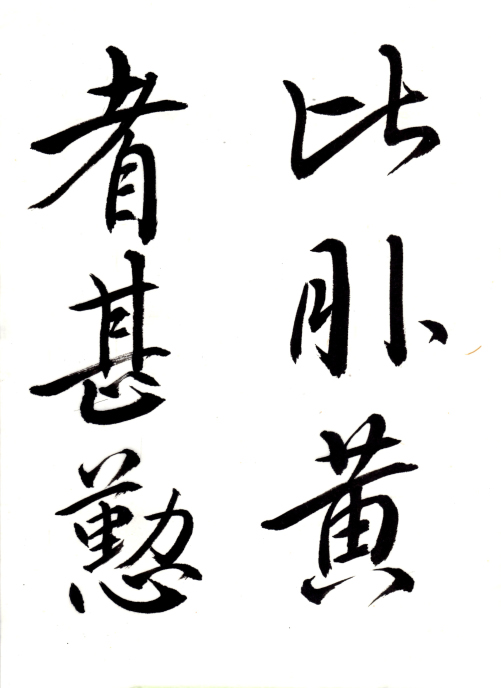 比外黄
者甚懃